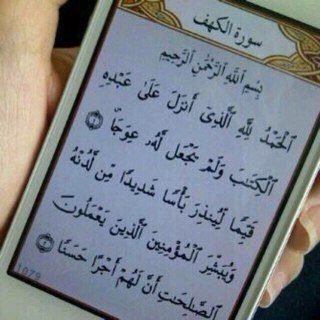 سورة الكهف
بِسْمِ ٱللَّهِ ٱلرَّحْمَٰنِ ٱلرَّحِيمِ
ٱلْحَمْدُ لِلَّهِ ٱلَّذِىٓ أَنزَلَ عَلَىٰ عَبْدِهِ
ٱلْكِتَٰبَ وَلَمْ يَجْعَل لَّهُۥ عِوَجَا ۜ ١
قَيِّمًا لِّيُنذِرَ بَأْسًا شَدِيدًا مِّن لَّدُنْهُ
وَيُبَشِّرَ ٱلْمُؤْمِنِينَ ٱلَّذِينَ يَعْمَلُونَ
ٱلصَّٰلِحَٰتِ أَنَّ لَهُمْ أَجْرًا حَسَنًا ٢